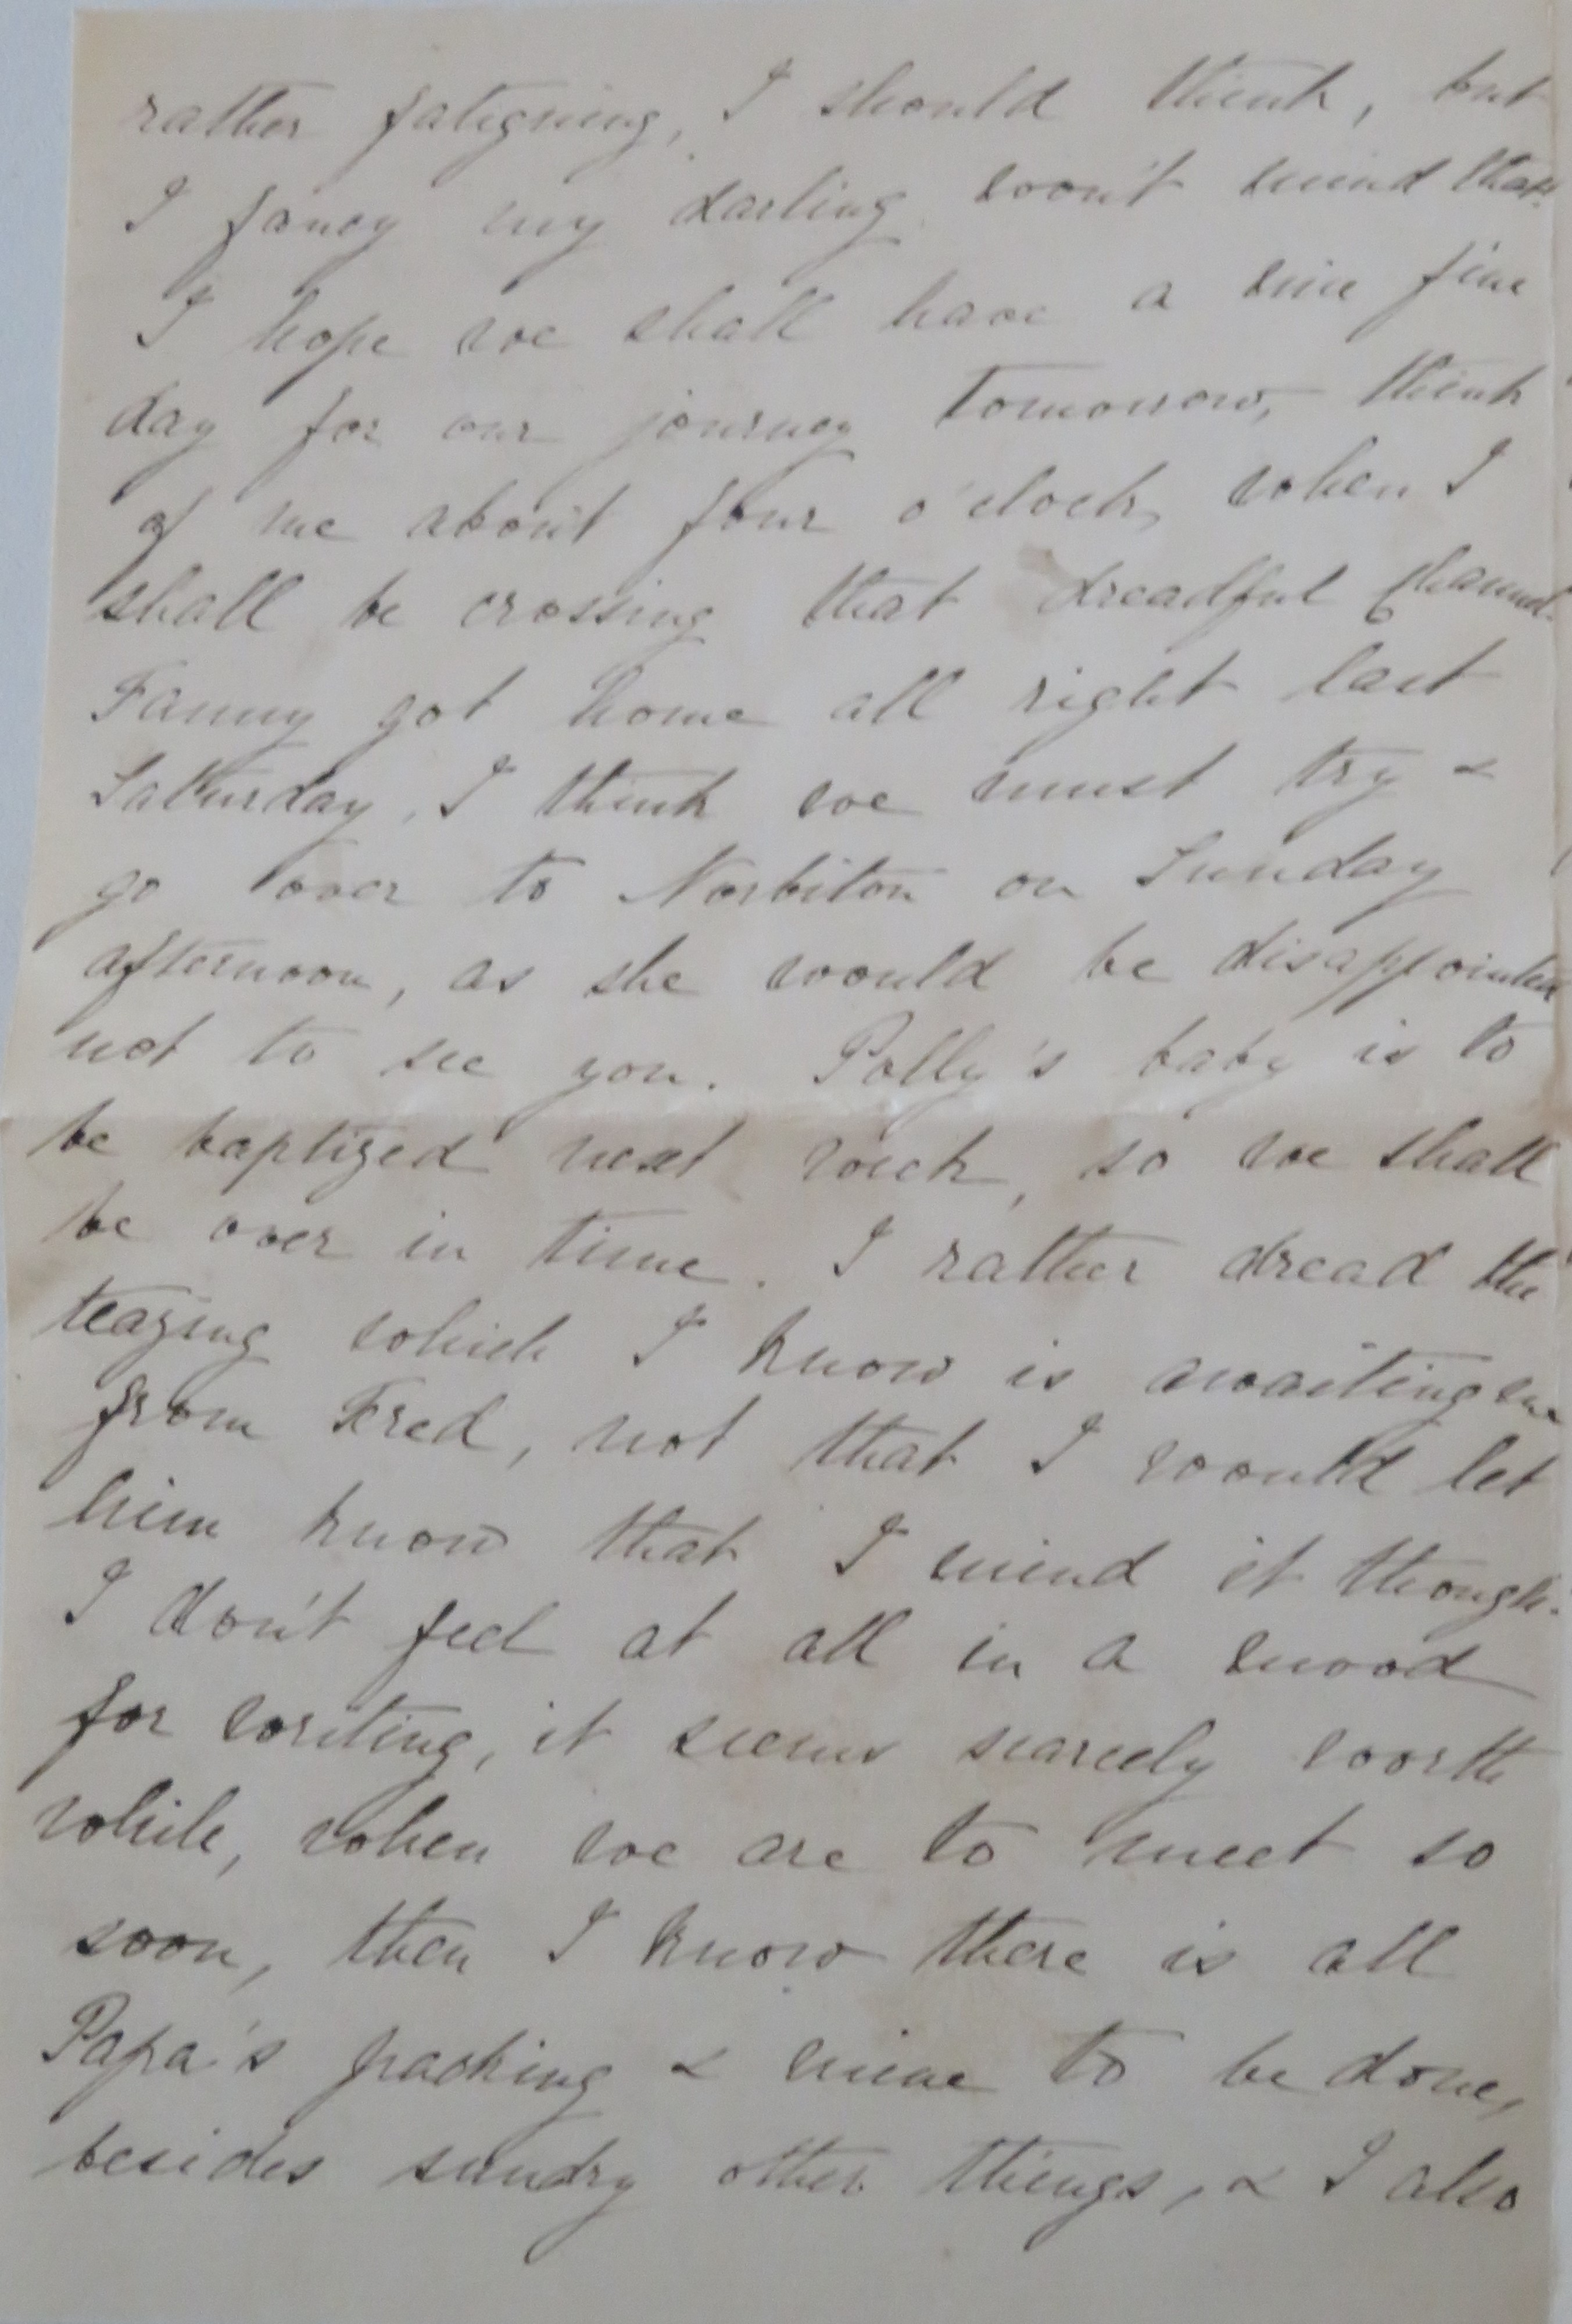 rather fatiguing, I should think, but
I fancy my darling won't mind that.
I hope we shall have a nice fine
day for our journey tomorrow, think
of me about four o'clock, when I
shall be crossing that dreadful Channel.
Fanny got home all right last
Saturday, I think we must try &
go over to Norbiton on Sunday
afternoon, as she would be disappointed
not to see you. Polly's baby is to
be baptized next week, so we shall
be over in time. I rather dread the
teazing which I know is awaiting me
from Fred, not that I would let
him know that I mind it though.
I don't feel at all in a mood
for writing, it seems scarcely worth
while, when we are to meet so
soon, then I know there is all
Papa's packing & mine to be done,
besides sundry other things, & I also